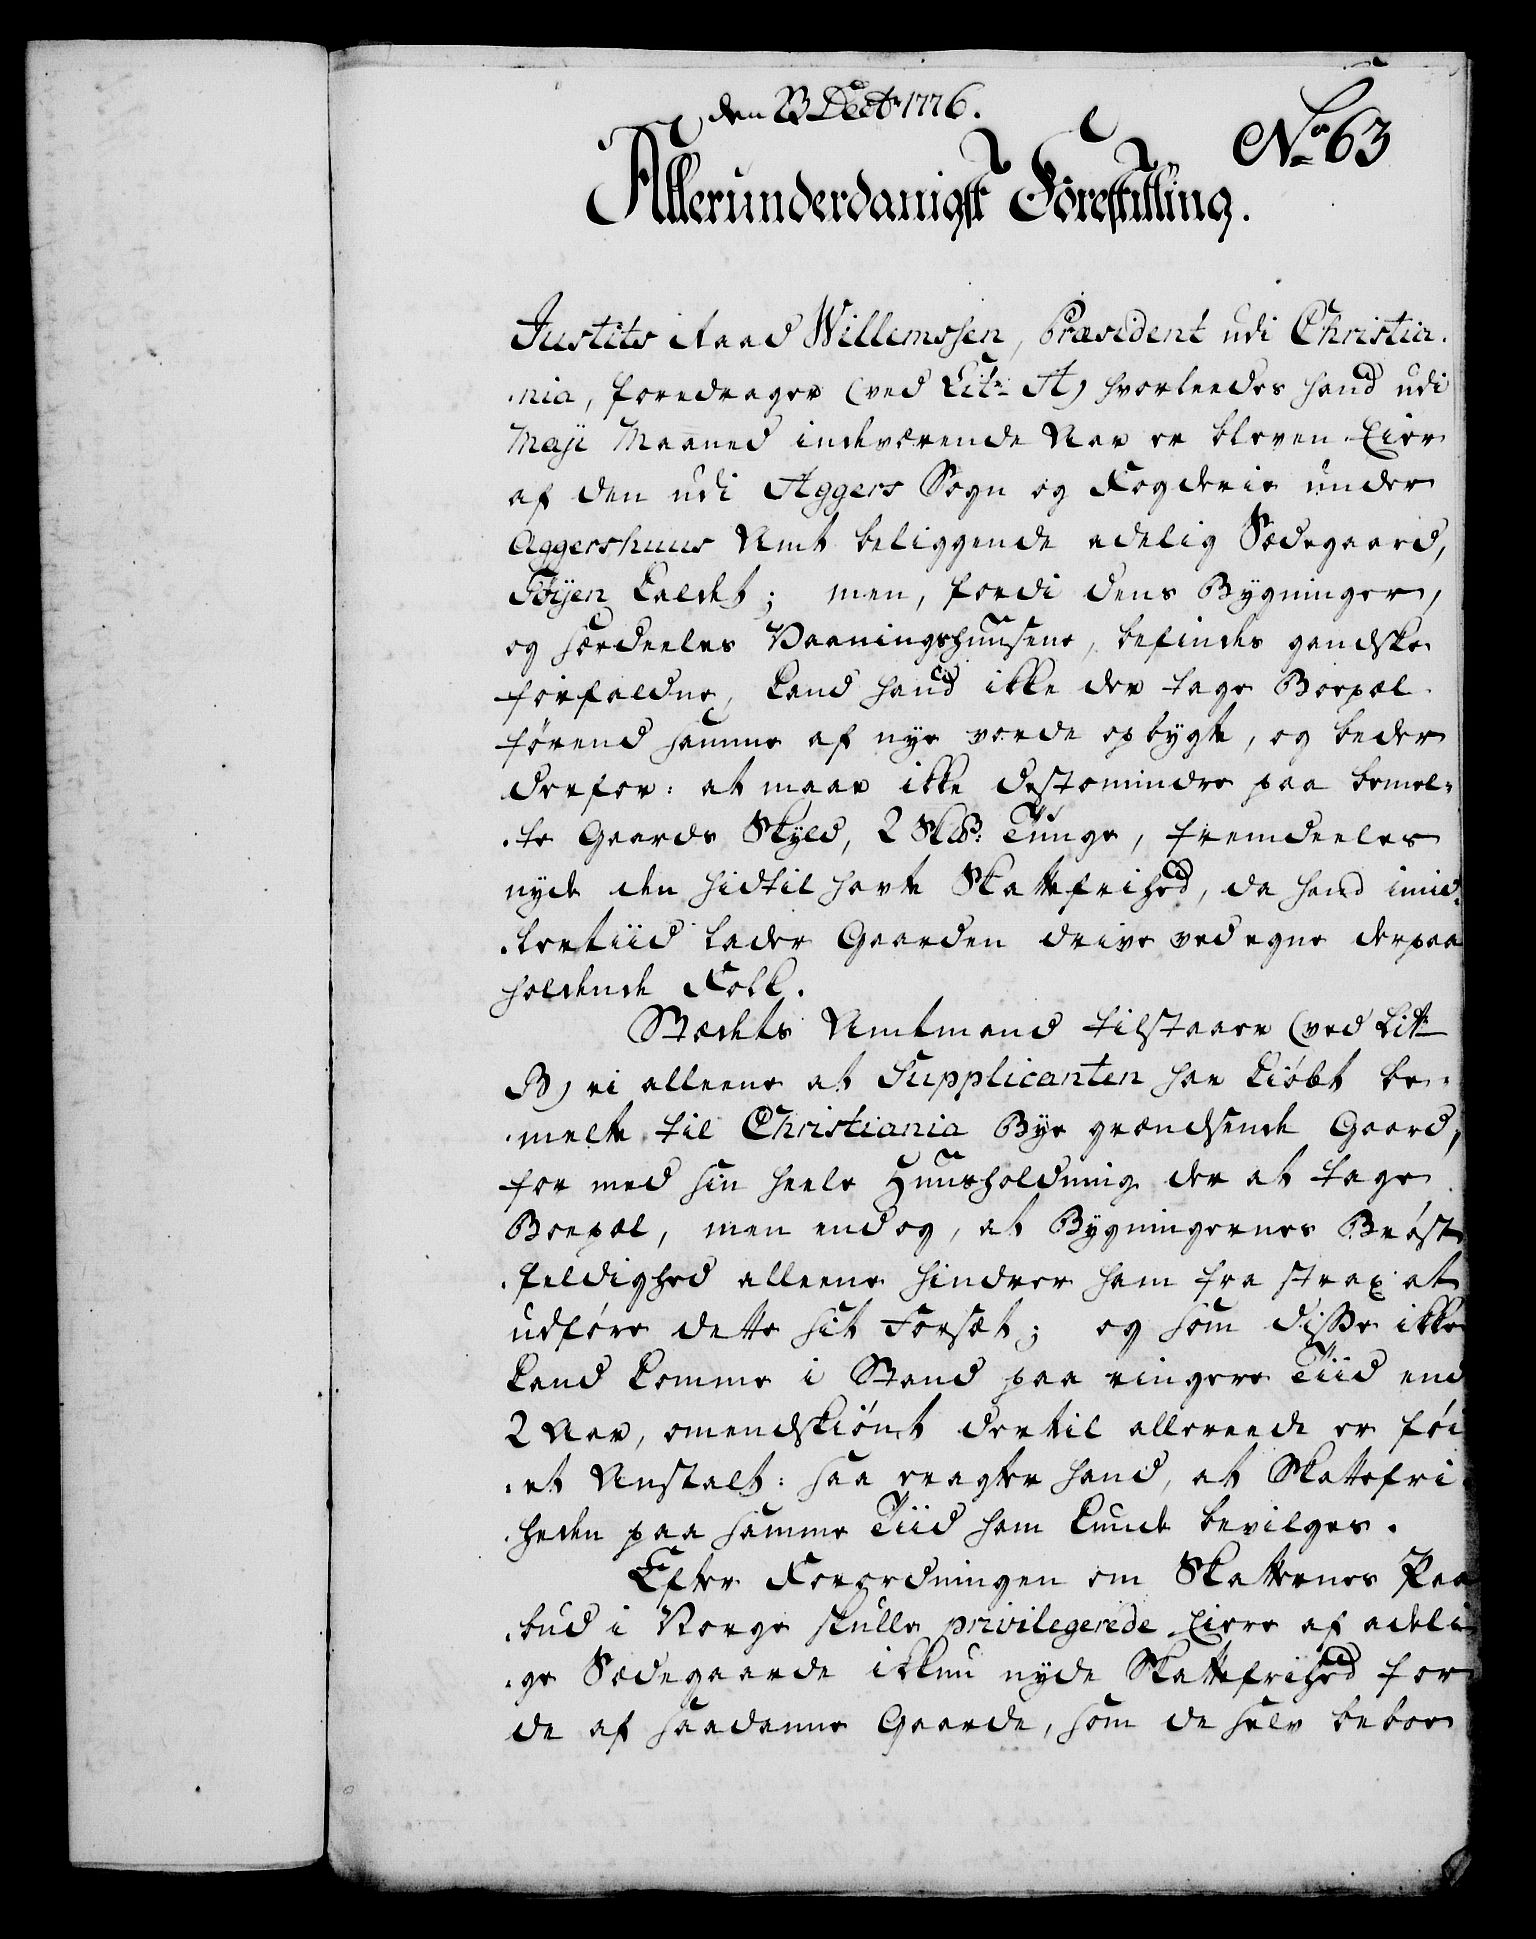 den 23 Dectr 1776.
No 63
Allerunderdanigst Forestilling.
Justits Raad Willemssen, Præsident udi Christia-
-nia, foredrager (ved Litr. A) hvorleedes hand udi
Maji Maaned indeværende Aar er bleven Eier
af den udi Aggers Sogn og Fogderie under
Aggershuus Amt beliggende adelig Sædegaard,
Töyen kaldet; men, fordi dens Bygninger,
og særdeeles Vaaningshuusene, befindes gandske
forfaldne, kand hand ikke der tage Boepæl
förend samme af nye vorde opbygte, og beder
derfor: at maae ikke destomindre paa bemel-
-te Gaards Skyld, 2 Sk℔: Tunge, fremdeeles
nyde den hidtil havte Skattefrihed, da hand imid-
-lertiid lader Gaarden drive ved egne derpaa
holdende Folk.
Stædets Amtmand tilstaaer (ved Litr.
B) ei alleene at Supplicanten har kiöbt be-
-melte til Christiania Bye grændsende Gaard,
for med sin heele Huusholdning der at tage
Boepæl, men endog, at Bygningernes Bröst-
-feldighed alleene hindrer ham fra strax at
udföre dette sit Forsæt; og som disse ikke
kand komme i Stand paa ringere Tiid end
2 Aar, omendskiönt dertil allereede er föi-
-et Anstalt: saa eragter hand, at Skattefri-
-heden paa samme Tiid ham kunde bevilges.
Efter Forordningen om Skatternes Paa-
-bud i Norge skulle privilegerede Eiere af adeli-
-ge Sædegaarde ikkun nyde Skattefrihed for
de af saadanne Gaarde, som de selv beboe